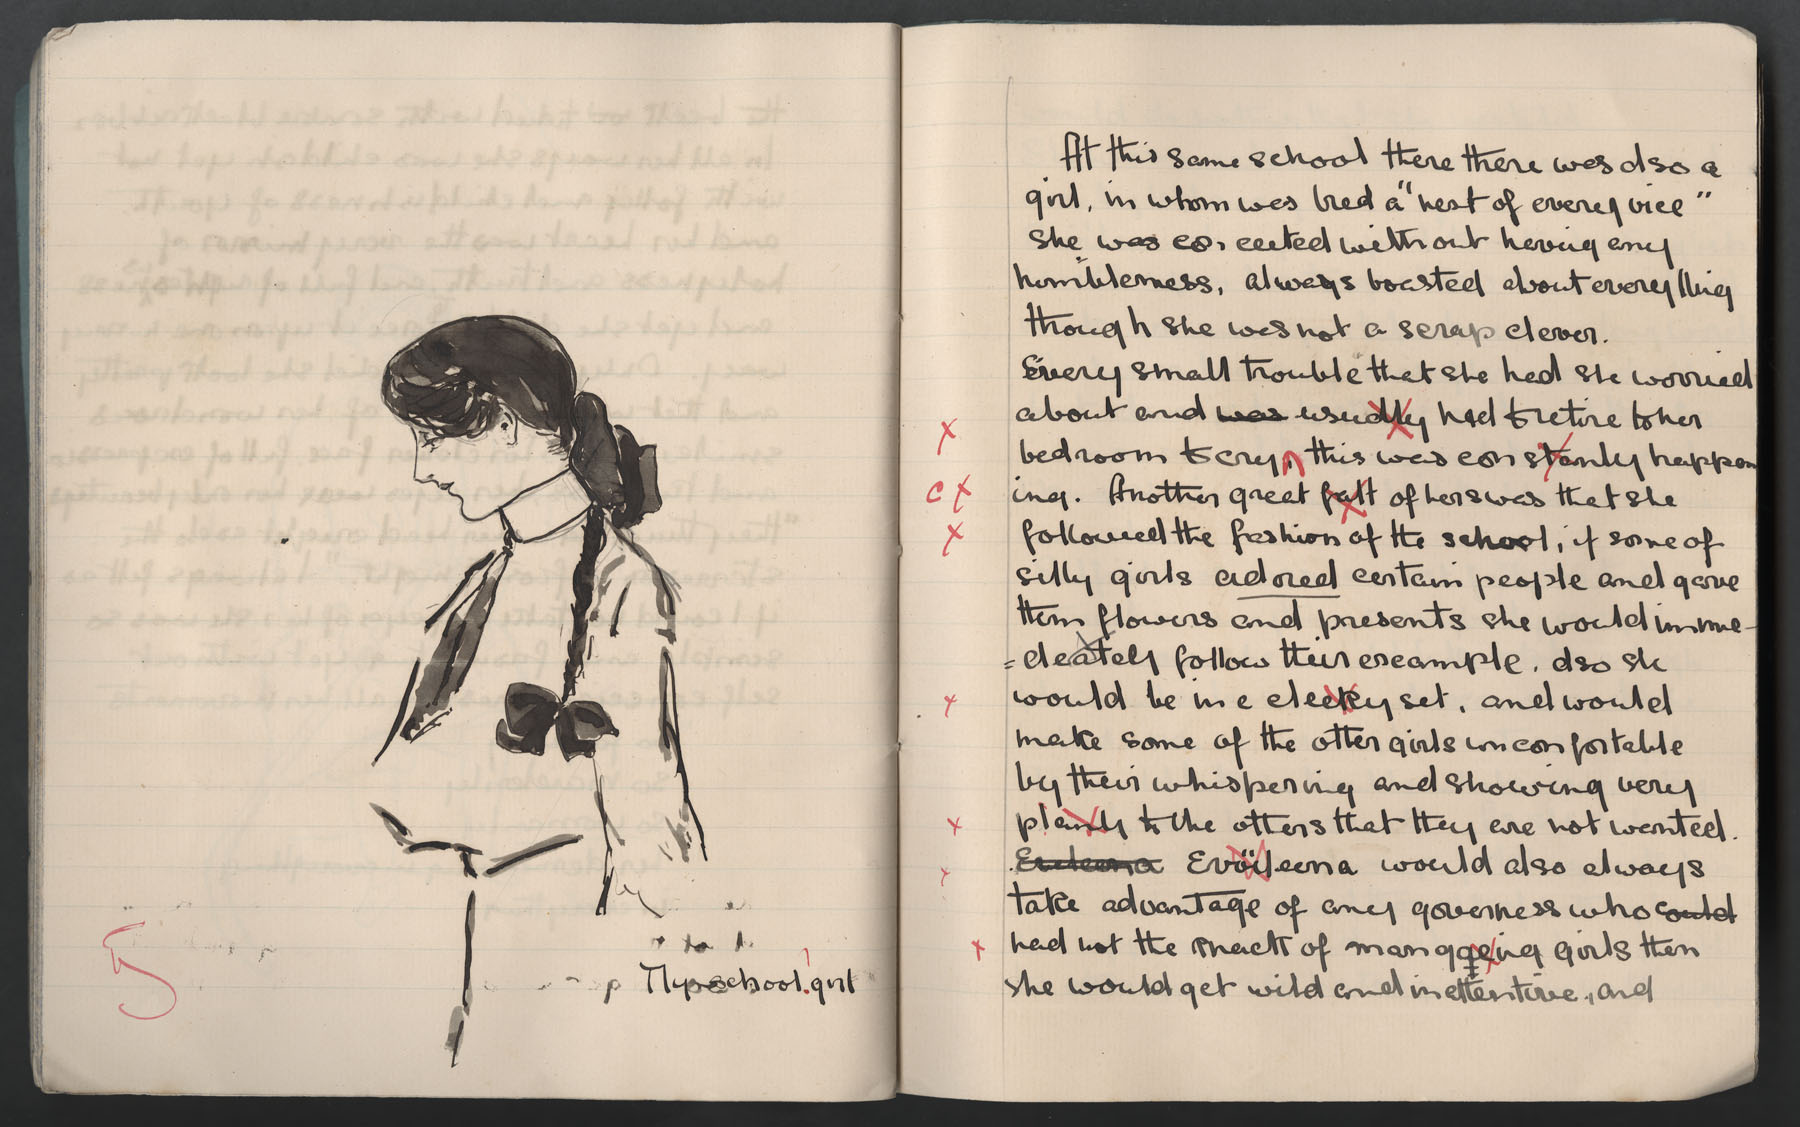 A schoolgirl
At this same school there there was also a
girl, in whom was bred a "nest of every vice"
She was conceited without having any
humbleness, always boasted about everything
though she was not a scrap clever.
Every small trouble that she had she worried
about and was usually had to retire to her
bedroom to cry, this was constanly happen
ing. Another great falt of hers was that she
followed the fashion of the school, if some of
silly girls adored certain people and gave
them flowers and presents she would imme-
=deately follow their example. also she
would be in a cleeky set, and would
make some of the other girls unconfortable
by their whispering and showing very
planly to the others that they are not wanted.
Evileena would also always
take advantage of any governess who could
had not the knack of manggeing girls then
she would get wild and inattentive, and
5